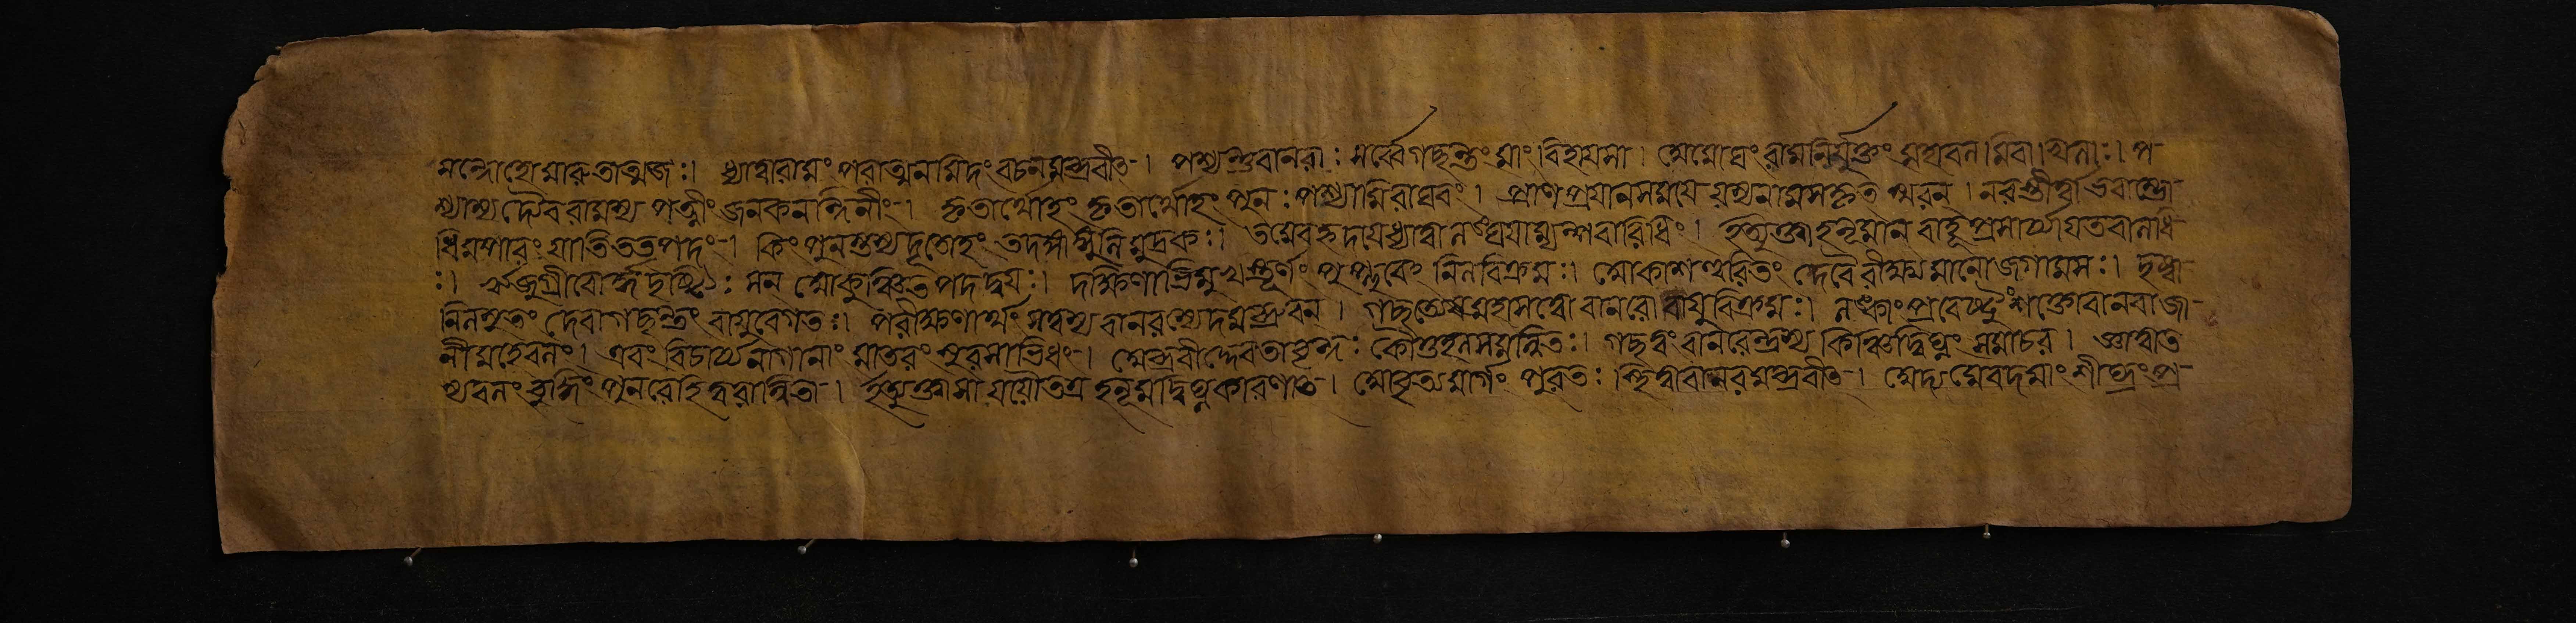 সন্দোহোমারুতাত্মজঃ। ধ্যাত্বারামং পরাত্মানমিদং বচনমব্রবীৎ। পশ্যন্তুবানরাঃ সর্ব্বেগচ্ছন্তং মাং বিহায়সা। অমোঘং রামনির্মুক্তং মহাবনমিবাখিলাঃ। প-
শ্যাম্যদ্যৈবরামস্য পত্নীং জনকনন্দিনীং। কৃতার্থোহং কৃতার্থোহং পুনঃ পশ্যামিরাঘবং। প্রাণপ্রয়ানসময়ে য়স্যনামসকৃত স্মরন। নরস্তীর্ত্বাভবাম্ভো-
ধিমপারং য়াতিততপদং। কিং পুনস্তস্যদূতোহং তদঙ্গাঙ্গুলিমুদ্রকঃ। তমেবহৃদয়েধ্যাত্বা লঙ্ঘয়াম্যল্পবারিধিং। ইত্যুক্তাহনূমান বাহূপ্রসার্য্যায়তবালধি-
ঃ। ঋজুগ্রীবোর্দ্ধদৃষ্টিঃ সন আকুঞ্চিতপদদ্বয়ঃ। দক্ষিণাভিমুখস্তূর্ণং পুপ্লুবেঽনিলবিক্রমঃ। আকাশাত্ত্বরিতং দেবৈর্বীক্ষ্যমানোজগামসঃ। দৃষ্ট্বা-
নিলসুতং দেবাগচ্ছন্তং বায়ুবেগতঃ। পরীক্ষণার্থং সত্ত্বস্য বানরস্যেদমব্রুবন। গচ্ছত্যেষমহাসত্ত্বো বানরো বায়ুবিক্রমঃ। লঙ্কাংপ্রবেষ্টুং শক্তোবানবাজা-
নীমহেবলং। এবং বিচার্য্যনাগানাং মাতরং সুরসাভিধং। অব্রবীদ্দেবতাবৃন্দঃ কৌতুহলসমন্বিতঃ। গচ্ছত্বং বানরেন্দ্রস্য কিঞ্চিদ্বিঘ্নং সমাচর। জ্ঞাত্বাত-
স্যবলং বুদ্ধিং পুনরেহিত্বরান্বিতা। ইত্যুক্তাসা য়য়ৌতত্র হনূমদ্বিঘ্নকারণাৎ। আবৃত্যমার্গং পুরতঃ স্থিত্বাবানরমব্রবীৎ। শীঘ্রংপ্র-